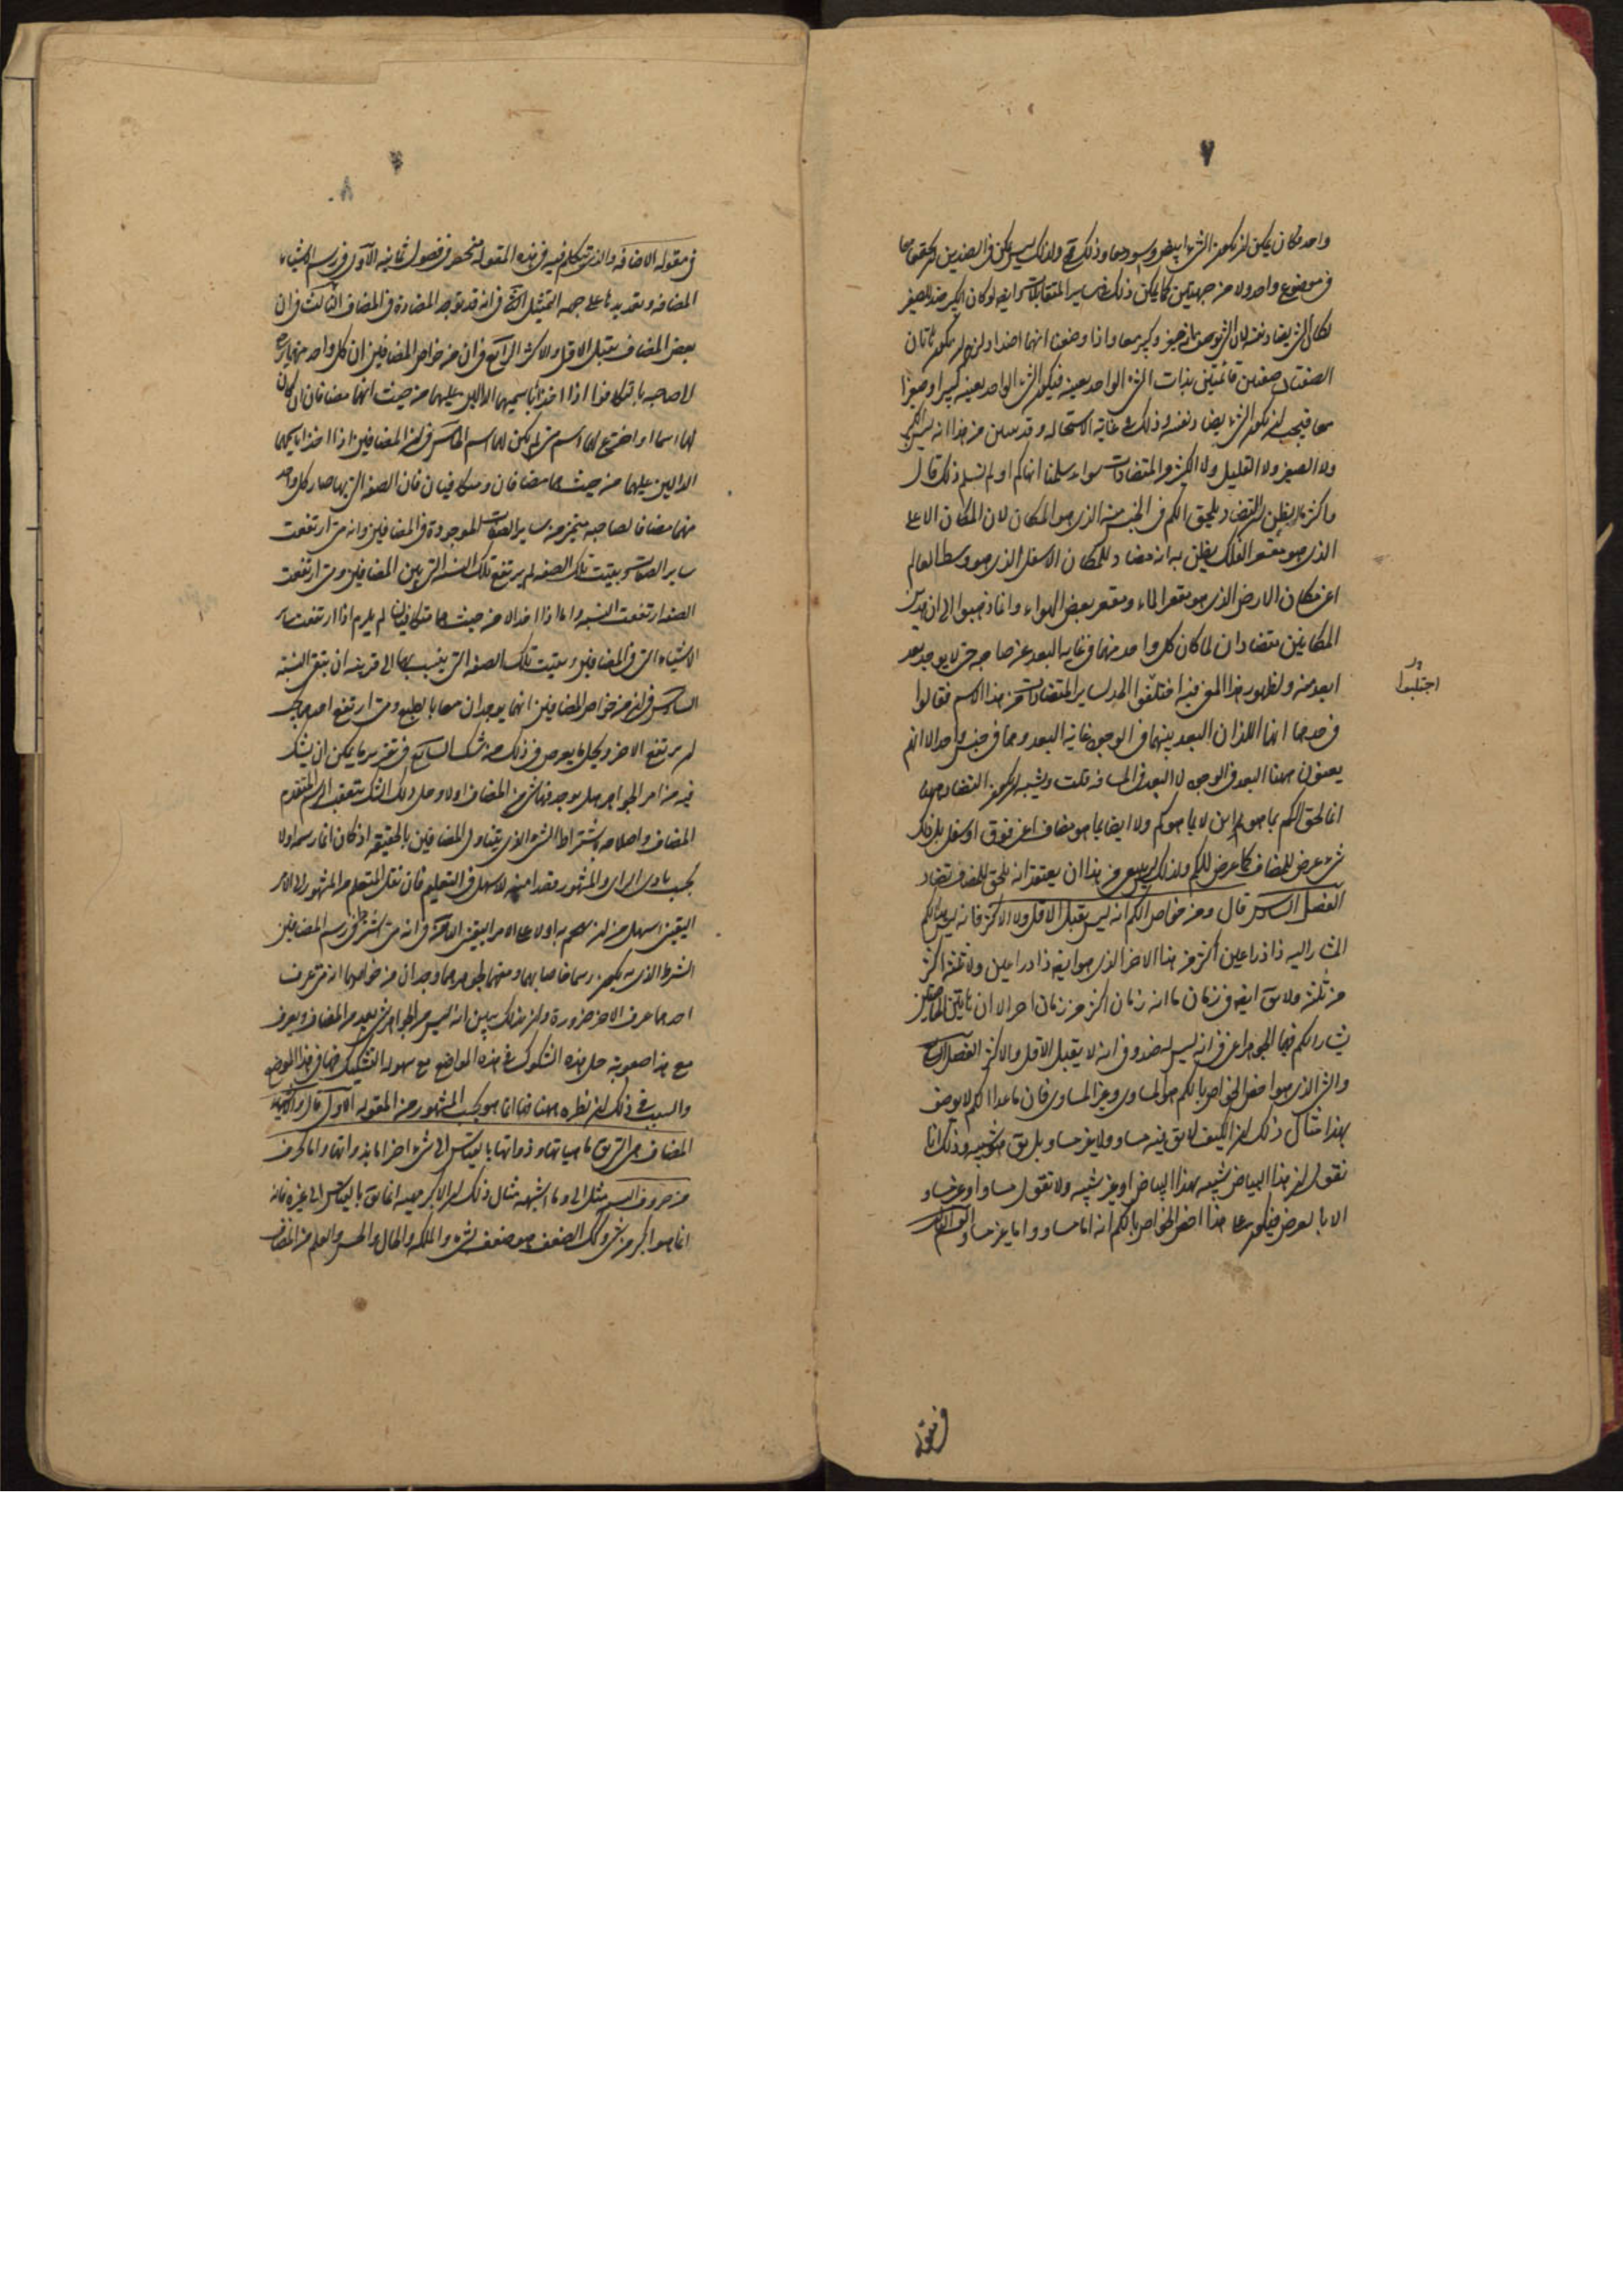 ٧
واحد فكان يمكن ان يكون الشئ ابيض واسود معا وذلك مح ولذلك ليس يمكن فى الضدين ان يجتمعا معا
فى موضوع واحد ولا من جهتين كما يمكن ذلك فى ساير المتقابلات وايضه لو كان الكبير ضد الصغير
لكان الشئ يضاد نفسه لان الشئ يوصف بانه صغير وكبير معا واذا وضعنا انهما اضداد لزم ان يكون هاتان
الصفتان صفتين قائمتين بذات الشئ الواحد بعينه فيكون الشئ الواحد بعينه كبيرا وصغيرا
معا فيجب ان يكون الشئ يضاد نفسه وذلك فى غاية الاستحاله وقد تبين من هذا انه ليس الكبير
ولا الصغير ولا القليل ولا الكثير من المتضادات سواء سلمنا انهما كم او لم نسلم ذلك قال
واكثر ما يظن ان التضاد يلحق الكم فى الجنس منه الذى هو المكان لان المكان الاعلى
الذى هو مقعر الفلك يظن به انه مضاد للمكان الاسفل الذى هو وسط العالم
اعنى مكان الارض الذى هو مقعر الماء ومقعر بعض الهواء وانما ذهبوا الى ان هذين
المكانين متضادان لما كان كل واحد منهما فى غايه البعد عن صاحبه حتى لا يوجد بعد
ابعد منه ولظهور هذا المعنى فيه اختلقوا الحد لساير المتضادات من هذا الاسم فقالوا
اجتلبوا
فى حدهما انهما اللذان البعد بينهما فى الوجود غاية البعد وهما فى جنس واحد الا انهم
يعنون ههنا البعد فى الوجود لا البعد فى المسافه قلت ويشبه ان يكون التضاد ههنا
انما لحق الكم بما هو اين لا بما هو كم ولا ايضا بما هو مضاف اعنى فوق او اسفل بل ذلك
شئ عرض للمضاف كما عرض للكم ولذلك ليس يعرض من هذا ان يعتقد انه يلحق المضاف تضاد
الفصل السادس قال ومن خواص الكم انه ليس يقبل الاقل ولا الاكثر فانه ليس هذا الكم
المشار اليه ذا ذراعين اكثر من هذا الاخر الذى هو ايضه ذا ذراعين ولا ثلثه اكثر
من ثلثه ولا يق ايضه فى زمان ما انه زمان اكثر من زمان اخر الا ان هاتين الخاصتين
يشارك الكم فيهما الجوهر اعنى فى انه ليس له ضد وفى انه لا يقبل الاقل والاكثر الفصل السابع
والشئ الذى هو اخص الخواص بالكم هو المساوى وغير المساوى فان ما عدا الكم لا يوصف
بهذا مثال ذلك ان الكيف لا يق فيه مساو ولا غير مساو بل يق شبيه وذلك انا
نقول ان هذا البياض شبيه بهذا البياض او غير شبيه ولا نقول مساو او غير مساو
الا بالعرض فيكون على هذا اخص الخواص بالكم انه اما مساو واما غير مساو القسم الثالث
فى مقوله
٨
فى مقوله الاضافه والذى يتكلم فيه فى هذه المقوله منحصر فى فصول ثمانيه الاول فى رسم الاشياء
المضافه وتعديدها على جهه التمثيل الثانى فى انه قد توجد المضادة فى المضاف الثالث فى ان
بعض المضاف يقبل الاقل والاكثر الرابع فى ان من خواص المضافين ان كل واحد منهما يرجع
لى صاحبه بالتكافؤ اذا اخذ باسميهما الدالين عليهما من حيث انهما مضافان ان كان
لهما اسما او اخترع لهما اسم متى لم يكن لهما اسم الخامس فى ان المضافين اذا اخذا باسميهما
الدالين عليهما من حيث هما مضافان ومتكافيان فان الصفه التى بها صار كل واحد
منهما مضافا لصاحبه يتميز من ساير الصفات الموجودة فى المضافين وانه متى ارتفعت
ساير الصفات وبقيت تلك الصفه لم يرتفع تلك النسبه التى بين المضافين ومتى ارتفعت
الصفه ارتفعت النسبه واما اذا اخذا لا من حيث هما متكافيان لم يلزم اذا ارتفعت ساير
الاشياء التى فى المضافين وبقيت تلك الصفه التى ينسب بها الى قرينه ان تبقى النسبه
السادس فى ان من خواص المضافين انهما يوجدان معا بالطبع ومتى ارتفع احدهما
لم يرتفع الاخر ويحل ما يعرض فى ذلك من شك السابع فى تقرير ما يمكن ان يشك
فيه من امر الجواهر هل يوجد فيها شئ من المضاف او لا وحل ذلك الشك بتعقب الرسم المتقدم
المضاف واصلاحه باشتراط الشئ الذى يتناول المضافين بالحقيقه اذ كان انما رسمه اولا
بحسب بادى الراى والمشهور قصدا منه للاسهل فى التعليم فان نقل المتعلم من المشهور الى الامر
اليقينى اسهل من ان يهجم به اولا على الامر اليقينى الثامن فى انه متى اشترط فى رسم المضافين
الشرط الذى به يكون رسما خاصا بهما ومفهما لجوهرهما وجد ان من خواصهما انه متى عرف
احدهما عرف الاخر ضرورة وان بذلك يبين انه ليس من الجواهر شئ يعد من المضاف ويعرف
مع هذا صعوبة حل هذه الشكوك فى هذه المواضع مع سهولة التشكيك فيها فى هذا الموضع
والسبب فى ذلك ان نظره ههنا فيها انما هو بحسب المشهور من المقوله الاول قال والاشياء
المضاف هى التى يق ماهياتها وذواتها بالقياس الى شئ اخر اما بذواتها واما بحرف
من حروف النسبه مثل الى وما اشبهه مثال ذلك ان الاكبر ماهيته انما يق بالقياس الى غيره فانه
انما هو اكبر من شئ وكذلك الضعف هو ضعف لشئ والملكه والحال والحس والعلم من المضاف